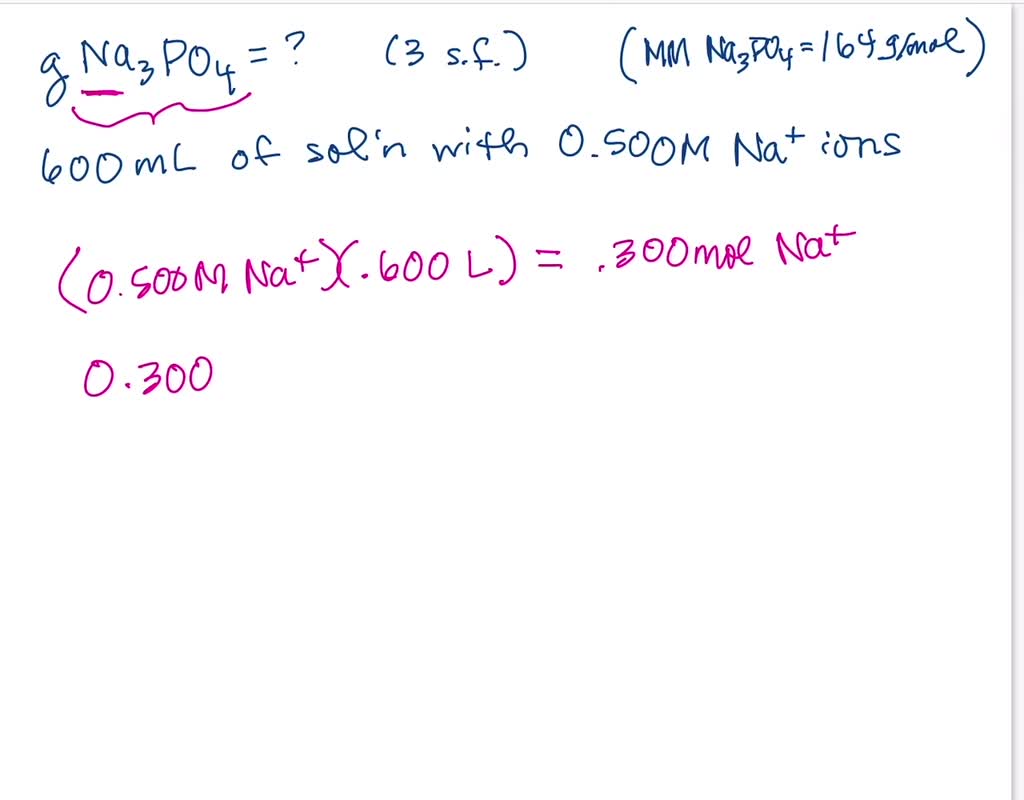 g Na₃PO₄ = ? (3 s.f.) (MM Na₃PO₄ = 164 g/mol)
600 mL of sol'n with 0.500M Na⁺ ions
(0.500M Na⁺)(.600 L) = .300 mol Na⁺
0.300